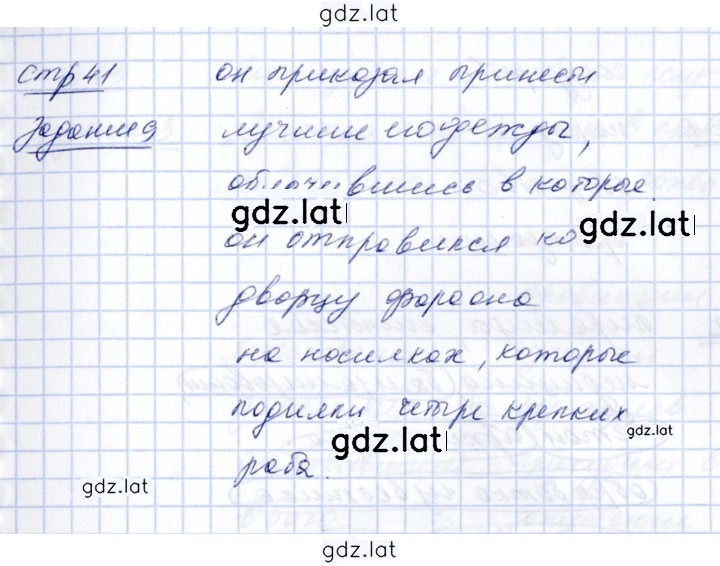 gdz.lat
стр 41
он приказал принести
Задание 9
лучшие его одежды,
облачившись в которые
gdz.lat
gdz.lat
он отправился ко
дворцу фараона
на носилках, которые
подняли четыре крепких
gdz.lat
gdz.lat
раба.
gdz.lat
gdz.lat